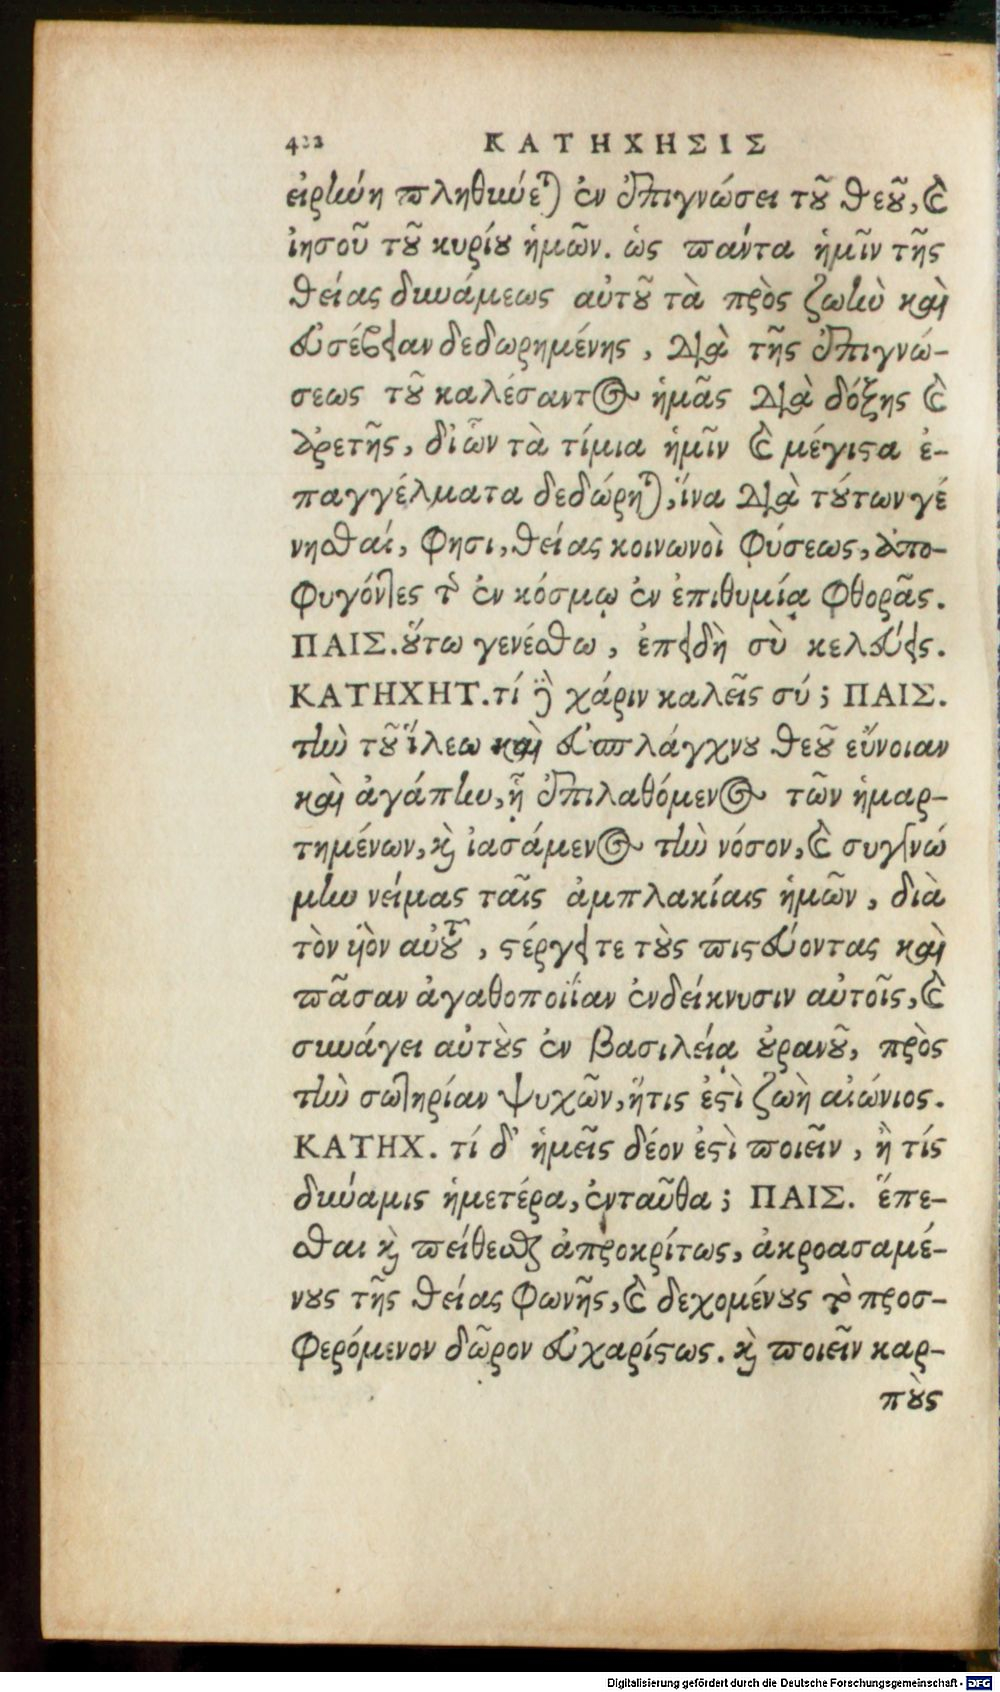 422 ΚΑΤΗΧΗΣΙΣ
εἰρήνη πληθύνεται ἐν ἐπιγνώσει τοῦ θεοῦ, καὶ
ἰησοῦ τοῦ κυρίου ἡμῶν. ὡς πάντα ἡμῖν τῆς
θείας δυνάμεως αὐτοῦ τὰ πρὸς ζωὴν καὶ
εὐσέβειαν δεδωρημένης, διὰ τῆς ἐπιγνώ-
σεως τοῦ καλέσαντος ἡμᾶς διὰ δόξης καὶ
ἀρετῆς, δι' ὧν τὰ τίμια ἡμῖν καὶ μέγιστα ἐ-
παγγέλματα δεδώρηται, ἵνα διὰ τούτων γέ
νησθαί, φησι, θείας κοινωνοὶ φύσεως, ἀπο-
φυγόντες τῆς ἐν κόσμῳ ἐν ἐπιθυμίᾳ φθορᾶς.
ΠΑΙΣ. οὕτω γενέσθω, ἐπειδὴ σὺ κελεύεις.
ΚΑΤΗΧΗΤ. τί δὲ χάριν καλεῖς σύ; ΠΑΙΣ.
τὴν τοῦ ἵλεω καὶ εὐσπλάγχνου θεοῦ εὔνοιαν
καὶ ἀγάπην, ᾗ ἐπιλαθόμενος τῶν ἡμαρ-
τημένων, καὶ ἰασάμενος τὴν νόσον, καὶ συγγνώ
μην νείμας ταῖς ἀμπλακίαις ἡμῶν, διὰ
τὸν υἱὸν αὐτοῦ, στέργει τε τοὺς πιστεύοντας καὶ
πᾶσαν ἀγαθοποιΐαν ἐνδείκνυσιν αὐτοῖς, καὶ
συνάγει αὐτοὺς ἐν βασιλείᾳ οὐρανοῦ, πρὸς
τὴν σωτηρίαν ψυχῶν, ἥτις ἐστὶ ζωὴ αἰώνιος.
ΚΑΤΗΧ. τί δ' ἡμεῖς δέον ἐστὶ ποιεῖν, ἢ τίς
δύναμις ἡμετέρα, ἐνταῦθα; ΠΑΙΣ. ἕπε-
σθαι καὶ πείθεσθαι ἀπροκρίτως, ἀκροασαμέ-
νους τῆς θείας φωνῆς, καὶ δεχομένους τὸ προσ-
φερόμενον δῶρον εὐχαρίστως. καὶ ποιεῖν καρ-
ποὺς
Digitalisierung gefördert durch die Deutsche Forschungsgemeinschaft - DFG